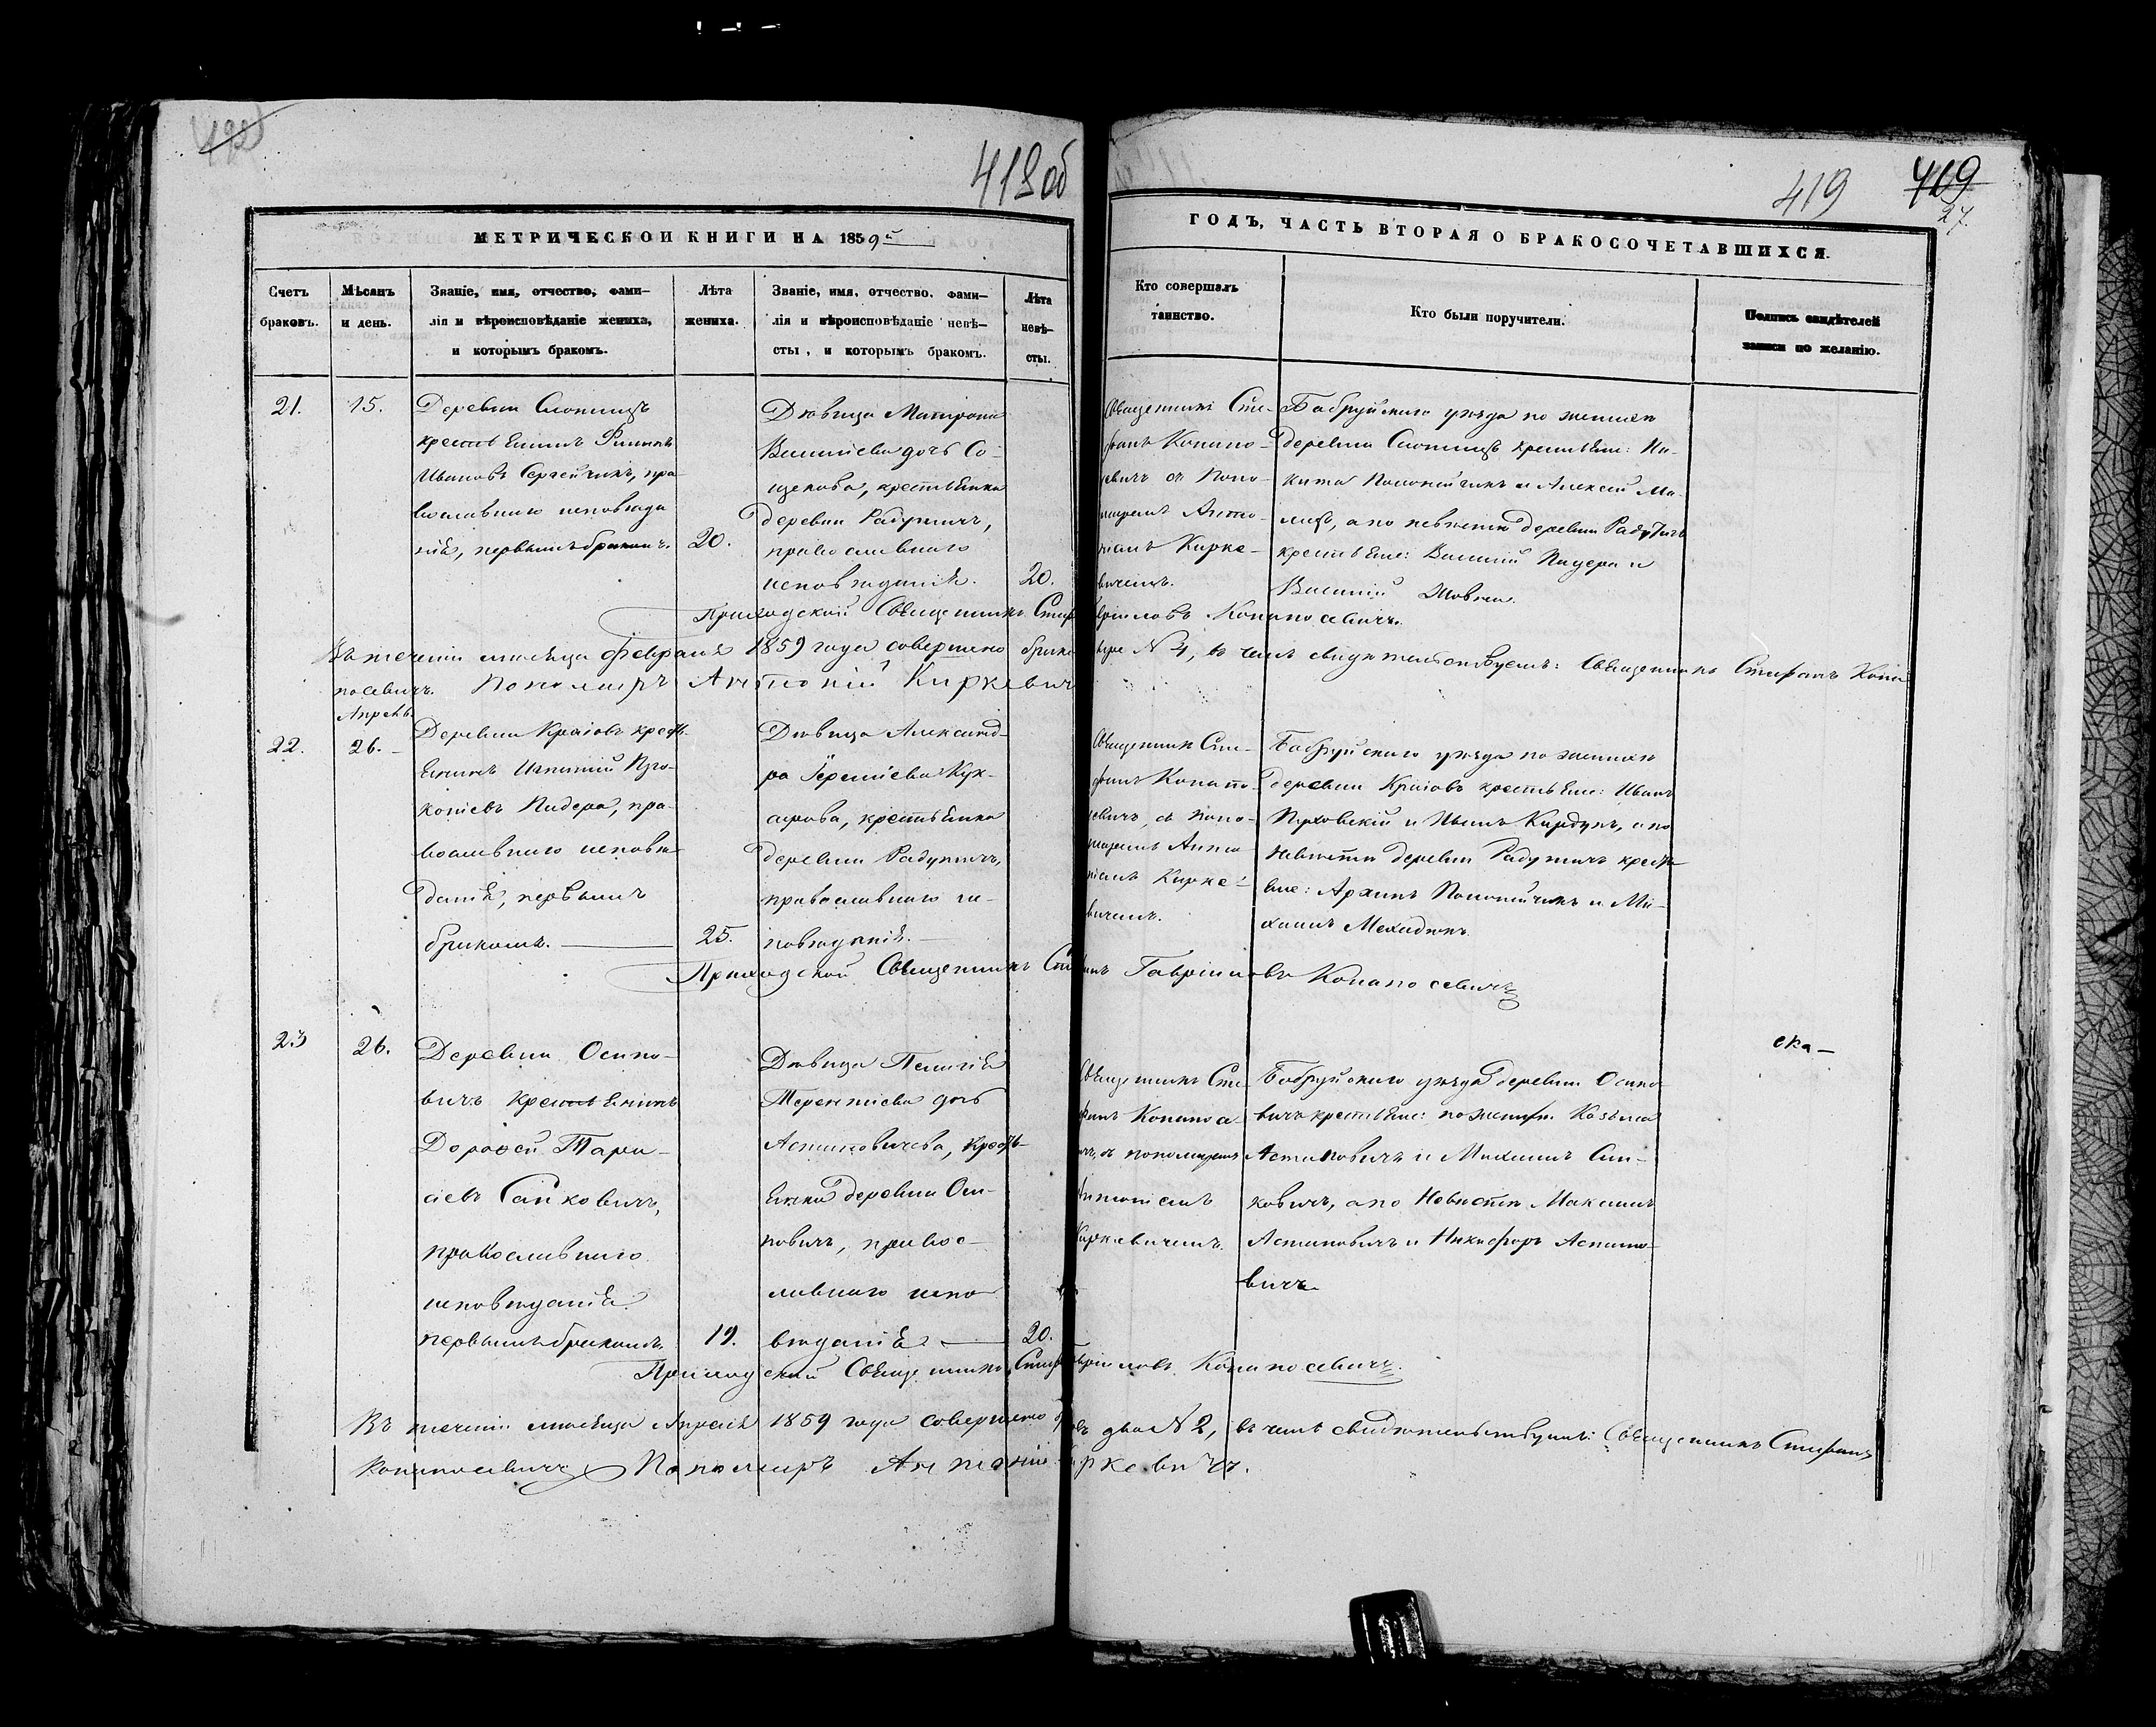 418об
419
27.
МЕТРИЧЕСКОЙ КНИГИ НА 1859й
ГОДЪ, ЧАСТЬ ВТОРАЯ О БРАКОСОЧЕТАВШИХСЯ.
Счетъ
браковъ.
Мѣсяцъ
и день.
Званіе, имя, отчество, фами-
лія и вѣроисповѣданіе жениха,
и которымъ бракомъ.
Лѣта
жениха.
Званіе, имя, отчество, фами-
лія и вѣроисповѣданіе невѣ-
сты, и которымъ бракомъ.
Лѣта
невѣ-
сты.
Кто совершалъ
таинство.
Кто были поручители.
Подпись свидѣтелей
записи по желанію.
21.
15.
Деревни
крестьянинъ
Ивановъ Сергейчикъ, пра
вославнаго исповѣда
нія, первымъ бракомъ.
20.
Дѣвица Матрона
дочь Со-
щекова, крестьянка
деревни Радутичъ,
православнаго
исповѣданія.
20.
Священникъ Сте-
фанъ Копано-
севичъ съ поно-
маремъ Анто-
ніемъ Кирке-
вичемъ.
Бобруйскаго уѣзда по женихѣ
деревни крестьяне: Ни-
кита и Алексей Ма-
а по невѣстѣ деревни Радутичъ
крестьяне: Василій Пидера и
Василій
Приходскій Священникъ Стеф
вріиловъ Копаносевичъ.
Въ теченіи мѣсяца Февраля 1859 года совершено брако
№ 4, въ чемъ свидѣтельствуемъ: Священникъ Стефанъ Копа
носевичъ. Пономарь Антоній Киркевичъ
Апрель
22.
26.
Деревни Краговъ кресть-
янинъ Игнатій Про-
копіевъ Пидера, пра-
вославнаго исповѣ-
данія, первымъ
бракомъ.
25.
Дѣвица Александ-
ра Кух-
арова, крестьянка
деревни Радутичъ,
православнаго ис-
повѣданія.
Священник Сте-
фанъ Копано-
севичъ, съ поно-
маремъ Анто
ніемъ Кирке-
вичемъ.
Бобруйскаго уѣзда по женихѣ
деревни Краговъ крестьяне: Иванъ
и Иванъ Кирдунъ, а по
невѣстѣ деревни Радутичъ кресть-
яне: Архипъ и Ми-
хаилъ
Приходской Священникъ Сте
анъ Гавріиловъ Копаносевичъ
23
26.
Деревни Осипо-
вичъ крестьянинъ
Дорофей Тара-
сіевъ Санковичъ,
православнаго
исповѣданія
первымъ бракомъ.
19.
Дѣвица Пелагія
Терентіева дочь
Астаповичева, кресть-
янка деревни Оси-
повичъ, правос-
лавнаго испо
вѣданія
20.
Священникъ Сте-
фанъ Копанос-
ичъ, съ пономаремъ
Антоніемъ
Киркевичемъ.
Бобруйскаго уѣзда деревни Осипо-
вичъ крестьяне: по женихѣ Козьма
Астаповичъ и Михаилъ Сан-
ковичъ, а по Невѣстѣ Максимъ
Астаповичъ и Никифоръ Астапо-
вичъ.
ска-
Приходской Священникъ Стеф
вріиловъ Копаносевичъ.
Въ теченіи мѣсяца Апреля 1859 года совершено
два № 2, въ чемъ свидѣтельствуемъ: Священникъ Стефанъ
Копаносевичъ Пономарь Антоній Киркевичъ.